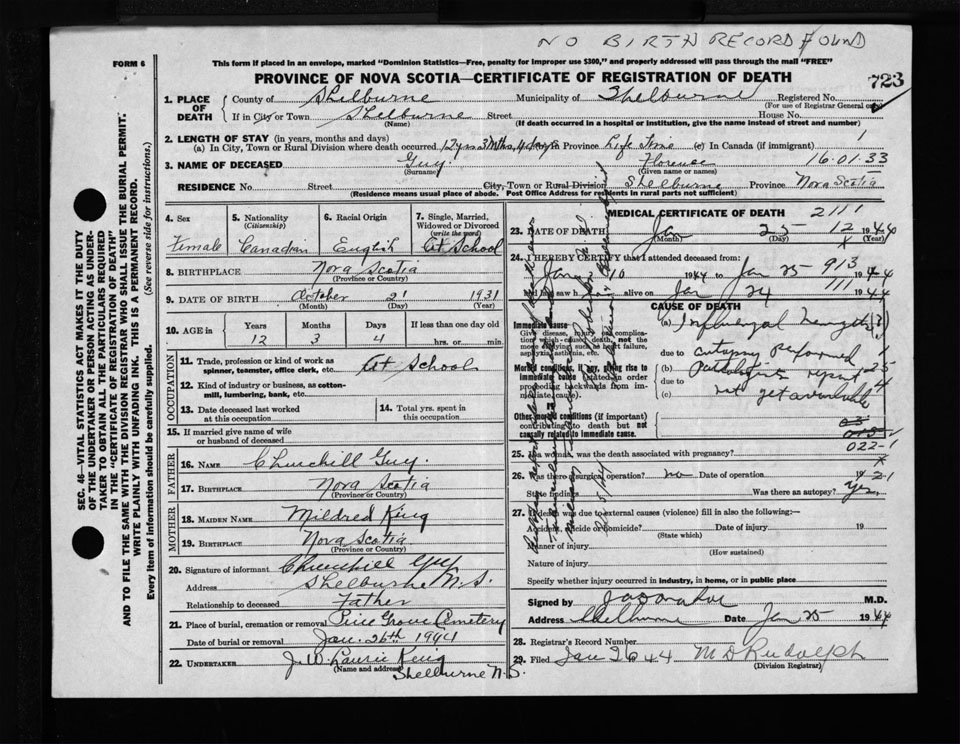 NO BIRTH RECORD FOUND
FORM 6
This form if placed in an envelope, marked "Dominion Statistics—Free, penalty for improper use $300," and properly addressed will pass through the mail "FREE"
PROVINCE OF NOVA SCOTIA—CERTIFICATE OF REGISTRATION OF DEATH
723
1. PLACE OF DEATH
County of Shelburne Municipality of Shelburne Registered No.
(For use of Registrar General only)
If in City or Town Shelburne Street House No.
(Name) (If death occurred in a hospital or institution, give the name instead of street and number)
2. LENGTH OF STAY (in years, months and days)
(a) In City, Town or Rural Division where death occurred 12 yrs 3 Mths, 4 days Province Life Time (c) in Canada (if immigrant)
3. NAME OF DECEASED Guy. Florence 16.01.33
(Surname) (Given name or names)
RESIDENCE No. Street City, Town or Rural Division Shelburne Province Nova Scotia
(Residence means usual place of abode. Post Office Address for residents in rural parts not sufficient)
4. Sex
Female
5. Nationality
(Citizenship)
Canadian
6. Racial Origin
English
7. Single, Married, Widowed or Divorced
(write the word)
At School
8. BIRTHPLACE Nova Scotia
(Province or Country)
9. DATE OF BIRTH October 21 1931
(Month) (Day) (Year)
10. AGE in
Years Months Days If less than one day old
12 3 4 hrs. or min.
OCCUPATION
11. Trade, profession or kind of work as spinner, teamster, office clerk, etc. At School
12. Kind of industry or business, as cotton-mill, lumbering, bank, etc.
13. Date deceased last worked at this occupation
14. Total yrs. spent in this occupation
15. If married give name of wife or husband of deceased
FATHER
16. NAME Churchill Guy.
17. BIRTHPLACE Nova Scotia
(Province or Country)
MOTHER
18. MAIDEN NAME Mildred King
19. BIRTHPLACE Nova Scotia
(Province or Country)
20. Signature of informant Churchill Guy
Address Shelburne N.S.
Relationship to deceased Father
21. Place of burial, cremation or removal Pine Grove Cemetery
Date of burial or removal Jan. 26th 1944
22. UNDERTAKER J. W. Laurie King
(Name and address) Shelburne N.S.
MEDICAL CERTIFICATE OF DEATH
2111
23. DATE OF DEATH Jan 25 1944
12
(Month) (Day) (Year)
24. I HEREBY CERTIFY that I attended deceased from:
Jan 10 1944 to Jan 25 1944
913
and last saw h alive on Jan 24 1944
111
CAUSE OF DEATH
Immediate cause
Give disease, injury or complication which caused death, not the mode of dying such as heart failure, asphyxia, asthenia, etc.
(a)
due to autopsy performed
Morbid conditions, if any, giving rise to immediate cause (stated in order proceeding backwards from immediate cause).
(b) Pathologists report
due to
(c) not yet available
Other morbid conditions (if important) contributing to death but not causally related to immediate cause.
022-1
25. If a woman, was the death associated with pregnancy?
26. Was there surgical operation? no Date of operation 19
State findings Was there an autopsy? Yes
27. If death was due to external causes (violence) fill in also the following:—
Accident, suicide or homicide? Date of injury 19
(State which)
Manner of injury
(How sustained)
Nature of injury
Specify whether injury occurred in industry, in home, or in public place
Signed by M.D.
Address Shelburne Date Jan 25 1944
28. Registrar's Record Number
29. Filed Jan 26 44 M D Rudolph
(Division Registrar)
SEC. 46—VITAL STATISTICS ACT MAKES IT THE DUTY
OF THE UNDERTAKER OR PERSON ACTING AS UNDER-
TAKER TO OBTAIN ALL THE PARTICULARS REQUIRED
IN THE "CERTIFICATE OF REGISTRATION OF DEATH"
AND TO FILE THE SAME WITH THE DIVISION REGISTRAR WHO SHALL ISSUE THE BURIAL PERMIT.
WRITE PLAINLY WITH UNFADING INK. THIS IS A PERMANENT RECORD.
Every item of information should be carefully supplied. (See reverse side for instructions.)